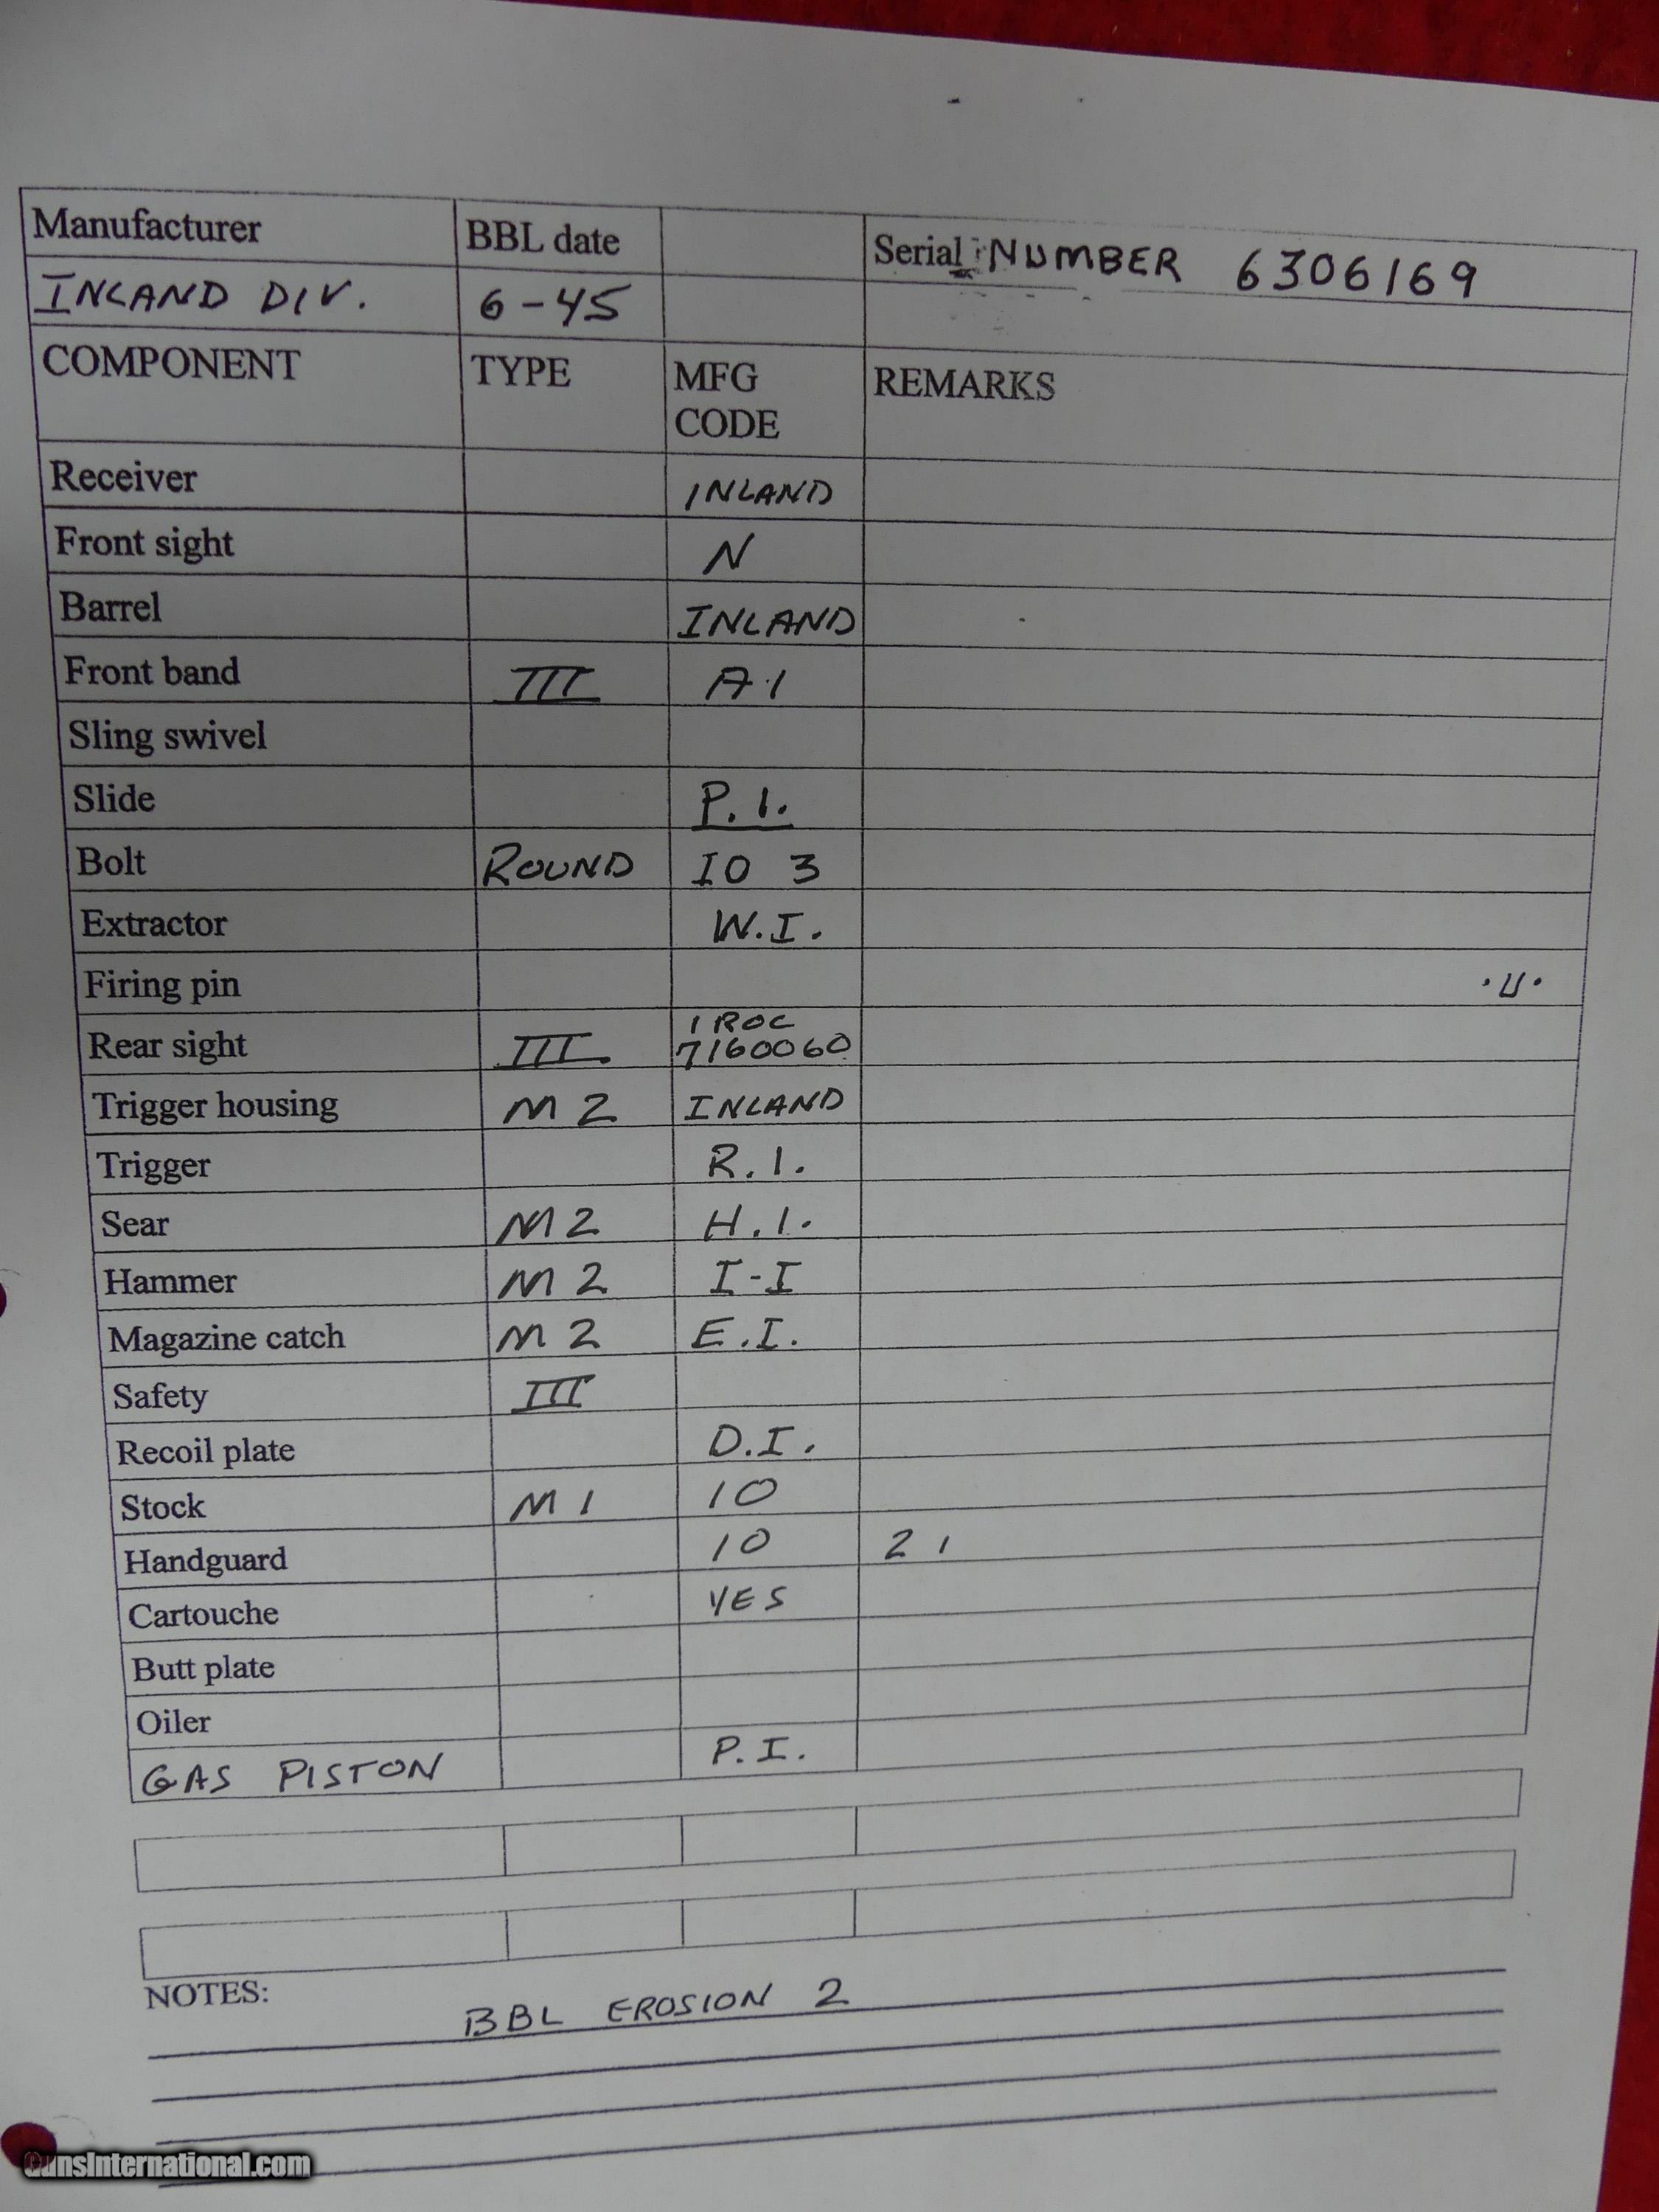 Manufacturer BBL date Serial NUMBER 6306169
INLAND DIV. 6-45
COMPONENT TYPE MFG CODE REMARKS
Receiver INLAND
Front sight N
Barrel INLAND
Front band III A1
Sling swivel
Slide P.I.
Bolt ROUND IO 3
Extractor W.I.
Firing pin .U.
Rear sight III IROC 7160060
Trigger housing M2 INLAND
Trigger R.I.
Sear M2 H.I.
Hammer M2 I-I
Magazine catch M2 E.I.
Safety III
Recoil plate D.I.
Stock M1 IO
Handguard IO 21
Cartouche YES
Butt plate
Oiler
GAS PISTON P.I.
NOTES: BBL EROSION 2
GunsInternational.com